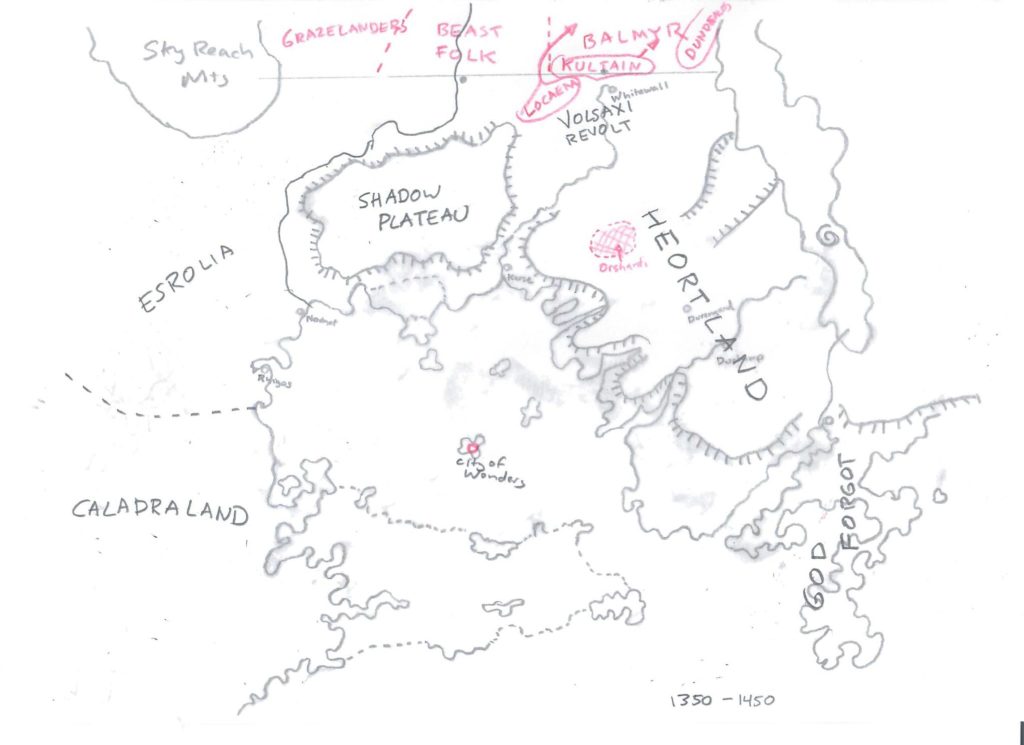 Sky Reach
Mts
GRAZELANDERS
BEAST
FOLK
BALMYR
DUNDEALOS
KULTAIN
LOCAEM
Whitewall
VOLSAXI
REVOLT
SHADOW
PLATEAU
HEORTLAND
Orshards
ESROLIA
Karse
Durengard
Nochet
Rhigos
City of
Wonders
CALADRALAND
GOD
FORGOT
1350-1450